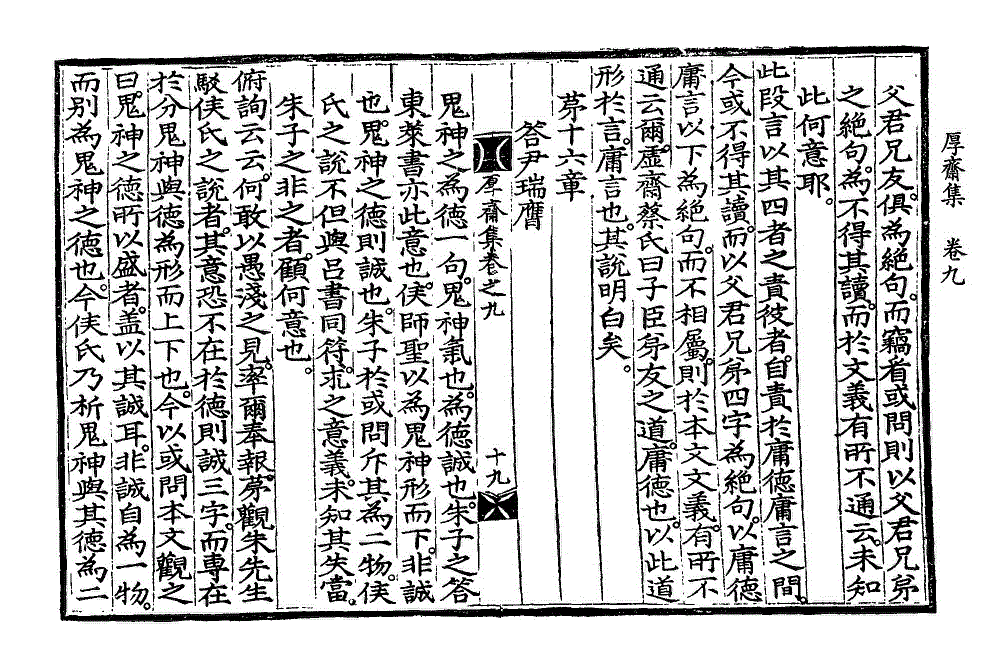 厚齋集　卷九
父君兄友。俱爲絶句。而竊看或問則以父君兄弟
之絶句。爲不得其讀。而於文義有所不通云。未知
此何意耶。
此段言以其四者之責彼者。自責於庸德庸言之間。
今或不得其讀。而以父君兄弟四字爲絶句。以庸德
庸言以下爲絶句。而不相屬。則於本文文義。有所不
通云爾。虛齋蔡氏曰子臣弟友之道。庸德也。以此道
形於言。庸言也。其說明白矣。
第十六章
答尹瑞膺
厚齋集卷之九
十九
鬼神之爲德一句。鬼神氣也。爲德誠也。朱子之答
東萊書亦此意也。侯師聖以爲鬼神形而下。非誠
也。鬼神之德則誠也。朱子於或問斥其爲二物。侯
氏之說不但與呂書同符。求之意義。未知其失當。
朱子之非之者。顧何意也。
俯詢云云。何敢以愚淺之見。率爾奉報。第觀朱先生
駁侯氏之說者。其意恐不在於德則誠三字。而專在
於分鬼神與德爲形而上下也。今以或問本文觀之
曰。鬼神之德所以盛者。盖以其誠耳。非誠自爲一物。
而別爲鬼神之德也。今侯氏乃析鬼神與其德爲二